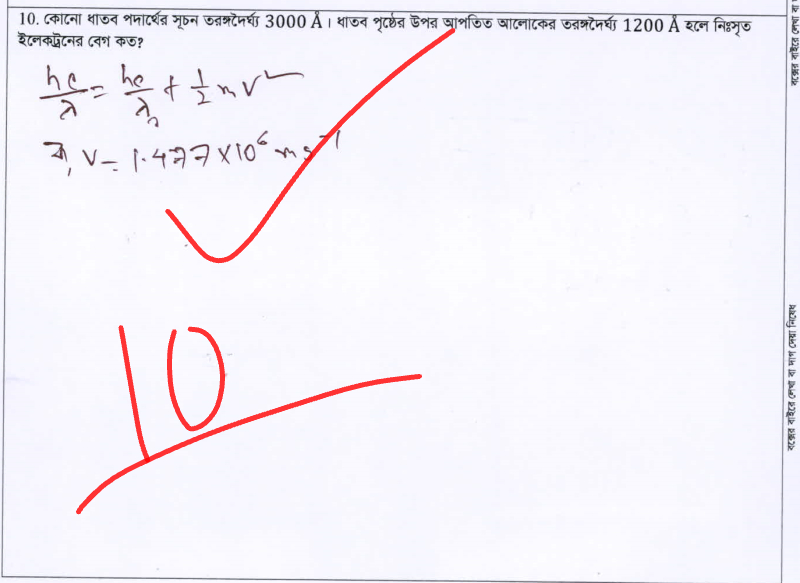 10. কোনো ধাতব পদার্থের সূচন তরঙ্গদৈর্ঘ্য 3000 Å। ধাতব পৃষ্ঠের উপর আপতিত আলোকের তরঙ্গদৈর্ঘ্য 1200 Å হলে নিঃসৃত
ইলেকট্রনের বেগ কত?
hc/λ = hc/λ₀ + 1/2 mv²
বা, v = 1.477×10⁶ ms⁻¹
10
বক্সের বাইরে লেখা বা
বক্সের বাইরে লেখা বা দাগ দেয়া নিষেধ